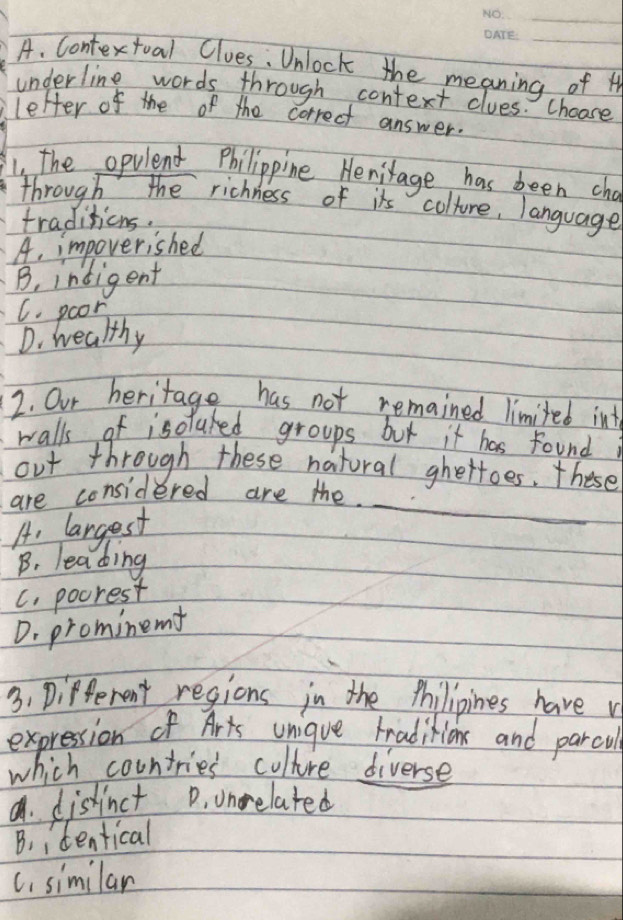 NO.
DATE:
A. Contextual Clues. Unlock the meaning of th
underline words through context clues. Choose
letter of the of the correct answer.
1. The opulent Philippine Henitage has been cha
through the richness of its colture, language
traditions.
A. impoverished
B. indigent
C. poor
D. wealthy
2. Our heritage has not remained limited int
walls of isolated groups but it has found i
out through these natural ghettoes. these
are considered are the.
A. largest
B. leading
C. poorest
D. prominemt
3. Different regions in the Philipines have v
expression of Arts unique traditions and parcul
which countries culture diverse
a. distinct D. unrelated
B. identical
C. similar